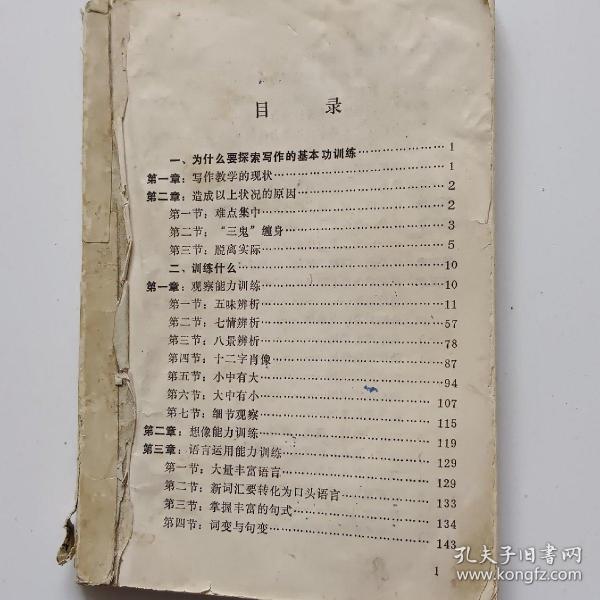 目 录
一、为什么要探索写作的基本功训练……………………1
第一章：写作教学的现状……………………1
第二章：造成以上状况的原因……………………2
第一节：难点集中……………………2
第二节：“三鬼”缠身……………………3
第三节：脱离实际……………………5
二、训练什么……………………10
第一章：观察能力训练……………………10
第一节：五味辨析……………………11
第二节：七情辨析……………………57
第三节：八景辨析……………………78
第四节：十二字肖像……………………87
第五节：小中有大……………………94
第六节：大中有小……………………107
第七节：细节观察……………………115
第二章：想像能力训练……………………119
第三章：语言运用能力训练……………………129
第一节：大量丰富语言……………………129
第二节：新词汇要转化为口头语言……………………133
第三节：掌握丰富的句式……………………134
第四节：词变与句变……………………143
1
孔夫子旧书网
www.kongfz.com